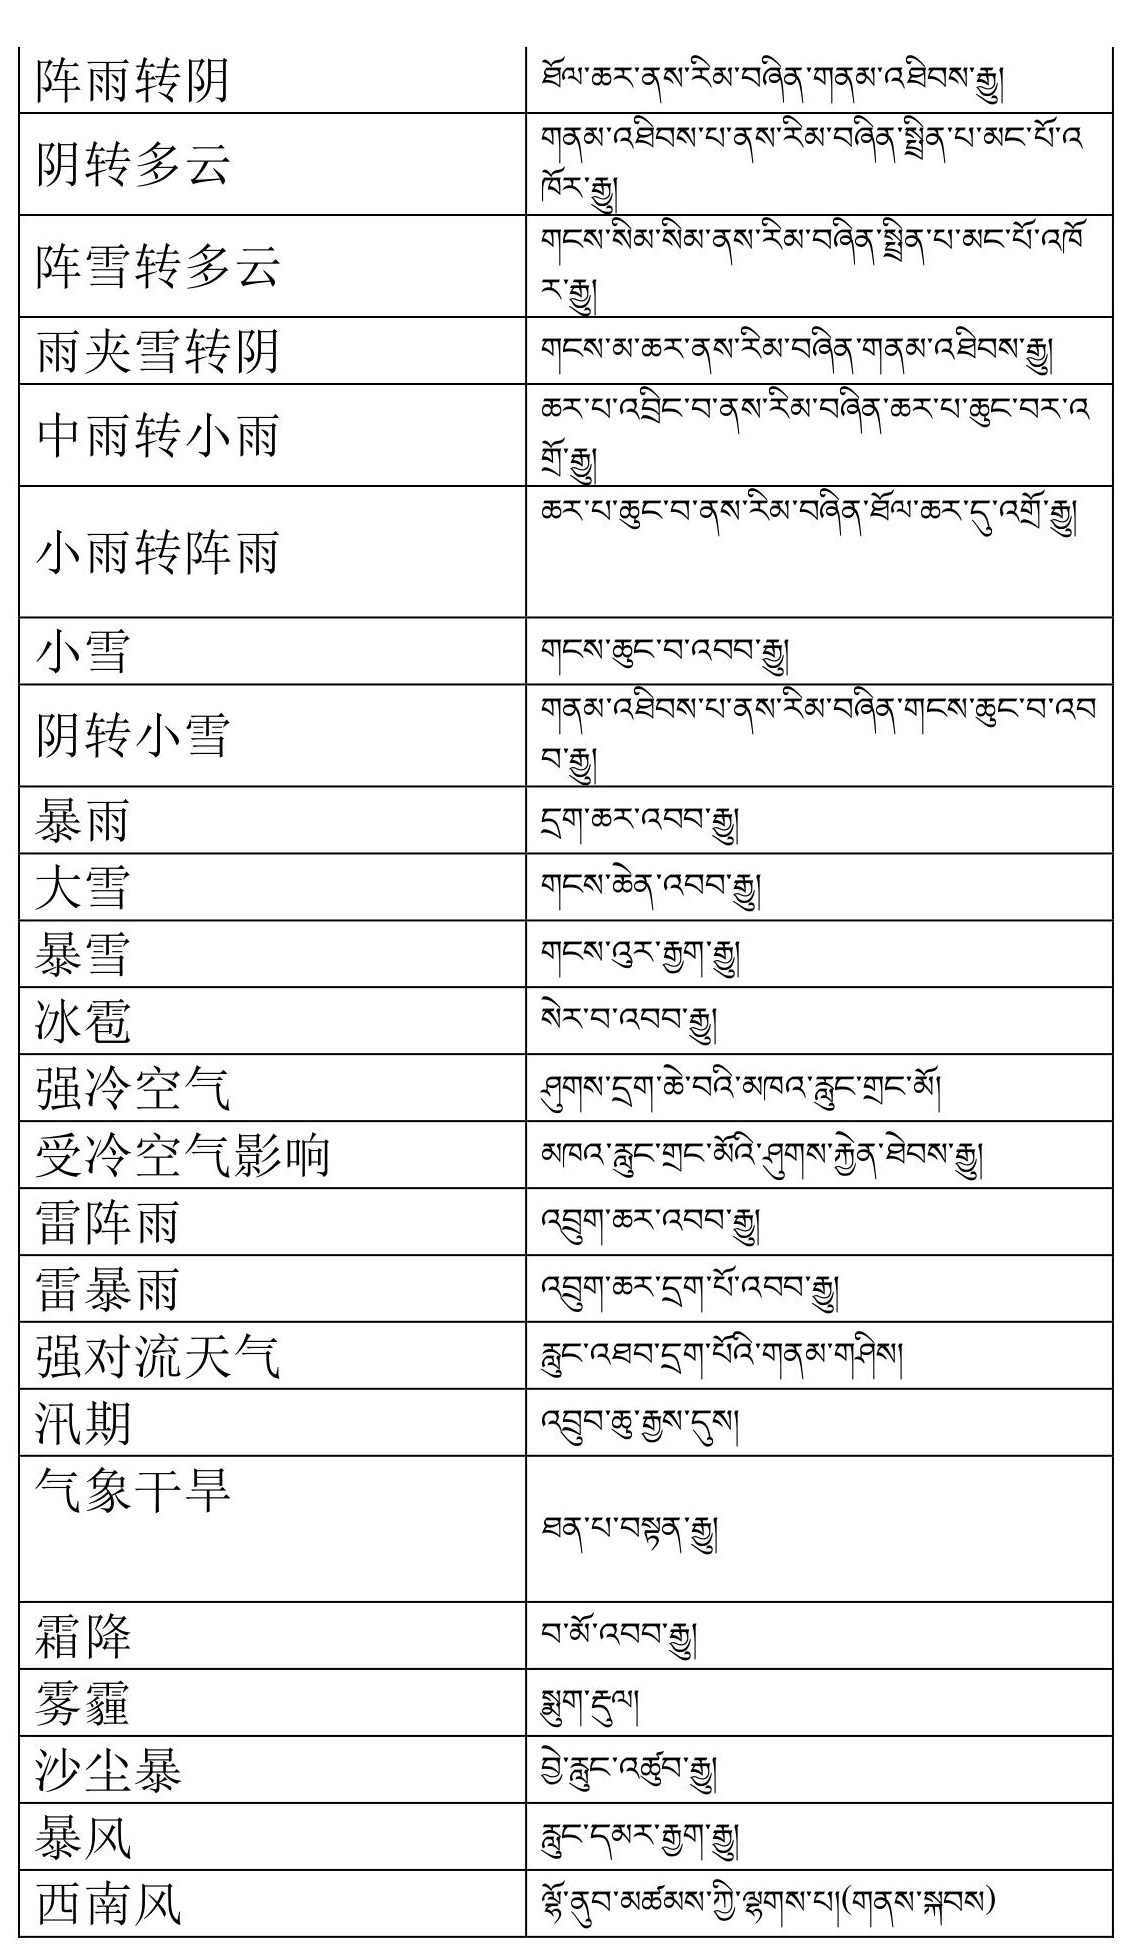 阵雨转阴
ཐོལ་ཆར་ནས་རིམ་བཞིན་གནམ་འཐིབས་རྒྱུ།
阴转多云
གནམ་འཐིབས་པ་ནས་རིམ་བཞིན་སྤྲིན་པ་མང་པོ་འ
ཁོར་རྒྱུ།
阵雪转多云
གངས་སིམ་སིམ་ནས་རིམ་བཞིན་སྤྲིན་པ་མང་པོ་འཁོ
ར་རྒྱུ།
雨夹雪转阴
གངས་མ་ཆར་ནས་རིམ་བཞིན་གནམ་འཐིབས་རྒྱུ།
中雨转小雨
ཆར་པ་འབྲིང་བ་ནས་རིམ་བཞིན་ཆར་པ་ཆུང་བར་འ
གྲོ་རྒྱུ།
小雨转阵雨
ཆར་པ་ཆུང་བ་ནས་རིམ་བཞིན་ཐོལ་ཆར་དུ་འགྲོ་རྒྱུ།
小雪
གངས་ཆུང་བ་འབབ་རྒྱུ།
阴转小雪
གནམ་འཐིབས་པ་ནས་རིམ་བཞིན་གངས་ཆུང་བ་འབ
བ་རྒྱུ།
暴雨
དྲག་ཆར་འབབ་རྒྱུ།
大雪
གངས་ཆེན་འབབ་རྒྱུ།
暴雪
གངས་འུར་རྒྱག་རྒྱུ།
冰雹
སེར་བ་འབབ་རྒྱུ།
强冷空气
ཤུགས་དྲག་ཆེ་བའི་མཁའ་རླུང་གྲང་མོ།
受冷空气影响
མཁའ་རླུང་གྲང་མོའི་ཤུགས་རྐྱེན་ཐེབས་རྒྱུ།
雷阵雨
འབྲུག་ཆར་འབབ་རྒྱུ།
雷暴雨
འབྲུག་ཆར་དྲག་པོ་འབབ་རྒྱུ།
强对流天气
རླུང་འཐབ་དྲག་པོའི་གནམ་གཤིས།
汛期
འབྲུབ་ཆུ་རྒྱས་དུས།
气象干旱
ཐན་པ་བསྟན་རྒྱུ།
霜降
བ་མོ་འབབ་རྒྱུ།
雾霾
སྨུག་རྡུལ།
沙尘暴
བྱེ་རླུང་འཚུབ་རྒྱུ།
暴风
རླུང་དམར་རྒྱག་རྒྱུ།
西南风
ལྷོ་ནུབ་མཚམས་ཀྱི་ལྷགས་པ།(གནས་སྐབས)